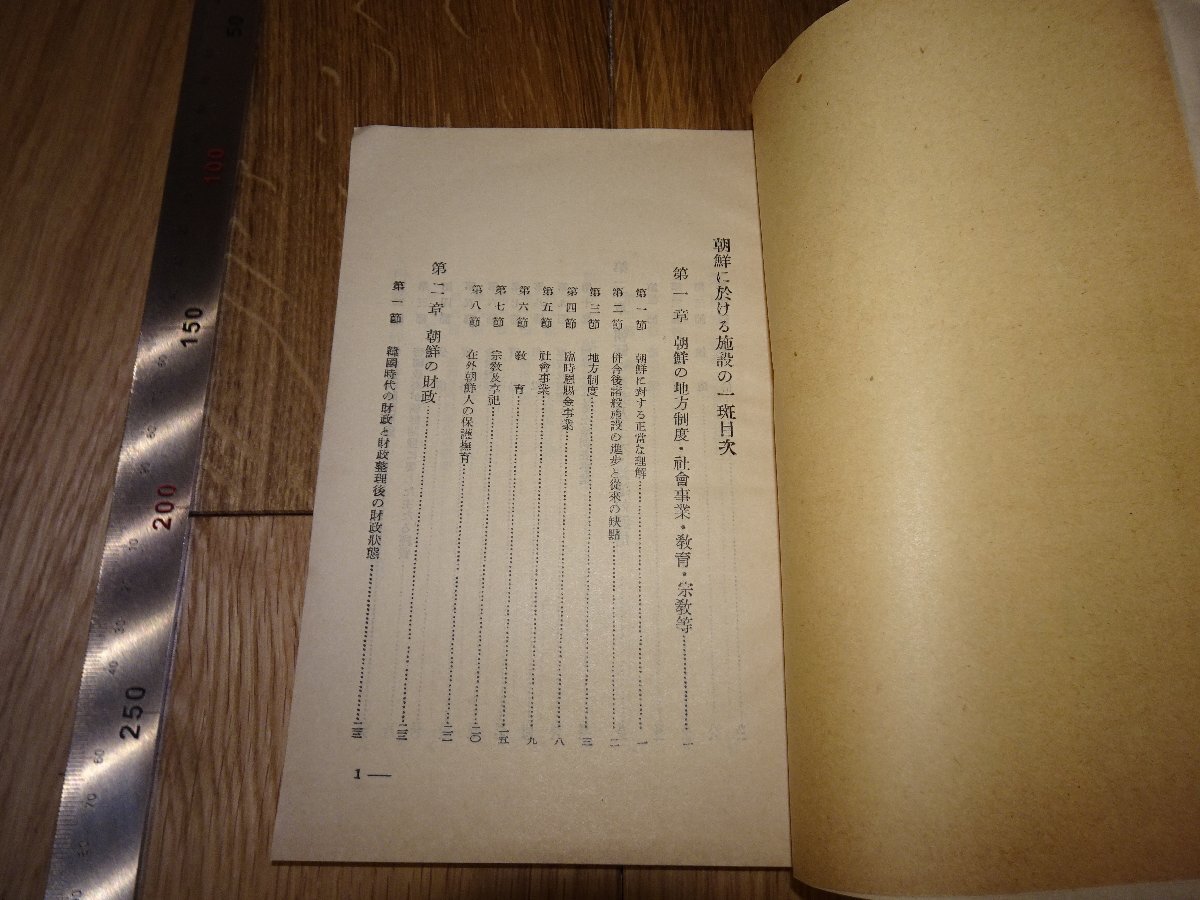 朝鮮に於ける施設の一斑目次
第一章 朝鮮の地方制度・社會事業・敎育・宗敎等……一
第一節 朝鮮に對する正常な理解……一
第二節 併合後諸般施設の進步と從來の缺點……二
第三節 地方制度……三
第四節 臨時恩賜金事業……八
第五節 社會事業……九
第六節 敎育……一五
第七節 宗敎及享祀……二〇
第八節 在外朝鮮人の保護撫育……
第二章 朝鮮の財政……
第一節 韓國時代の財政と財政整理後の財政狀態……
1 —
50
100
150
200
250